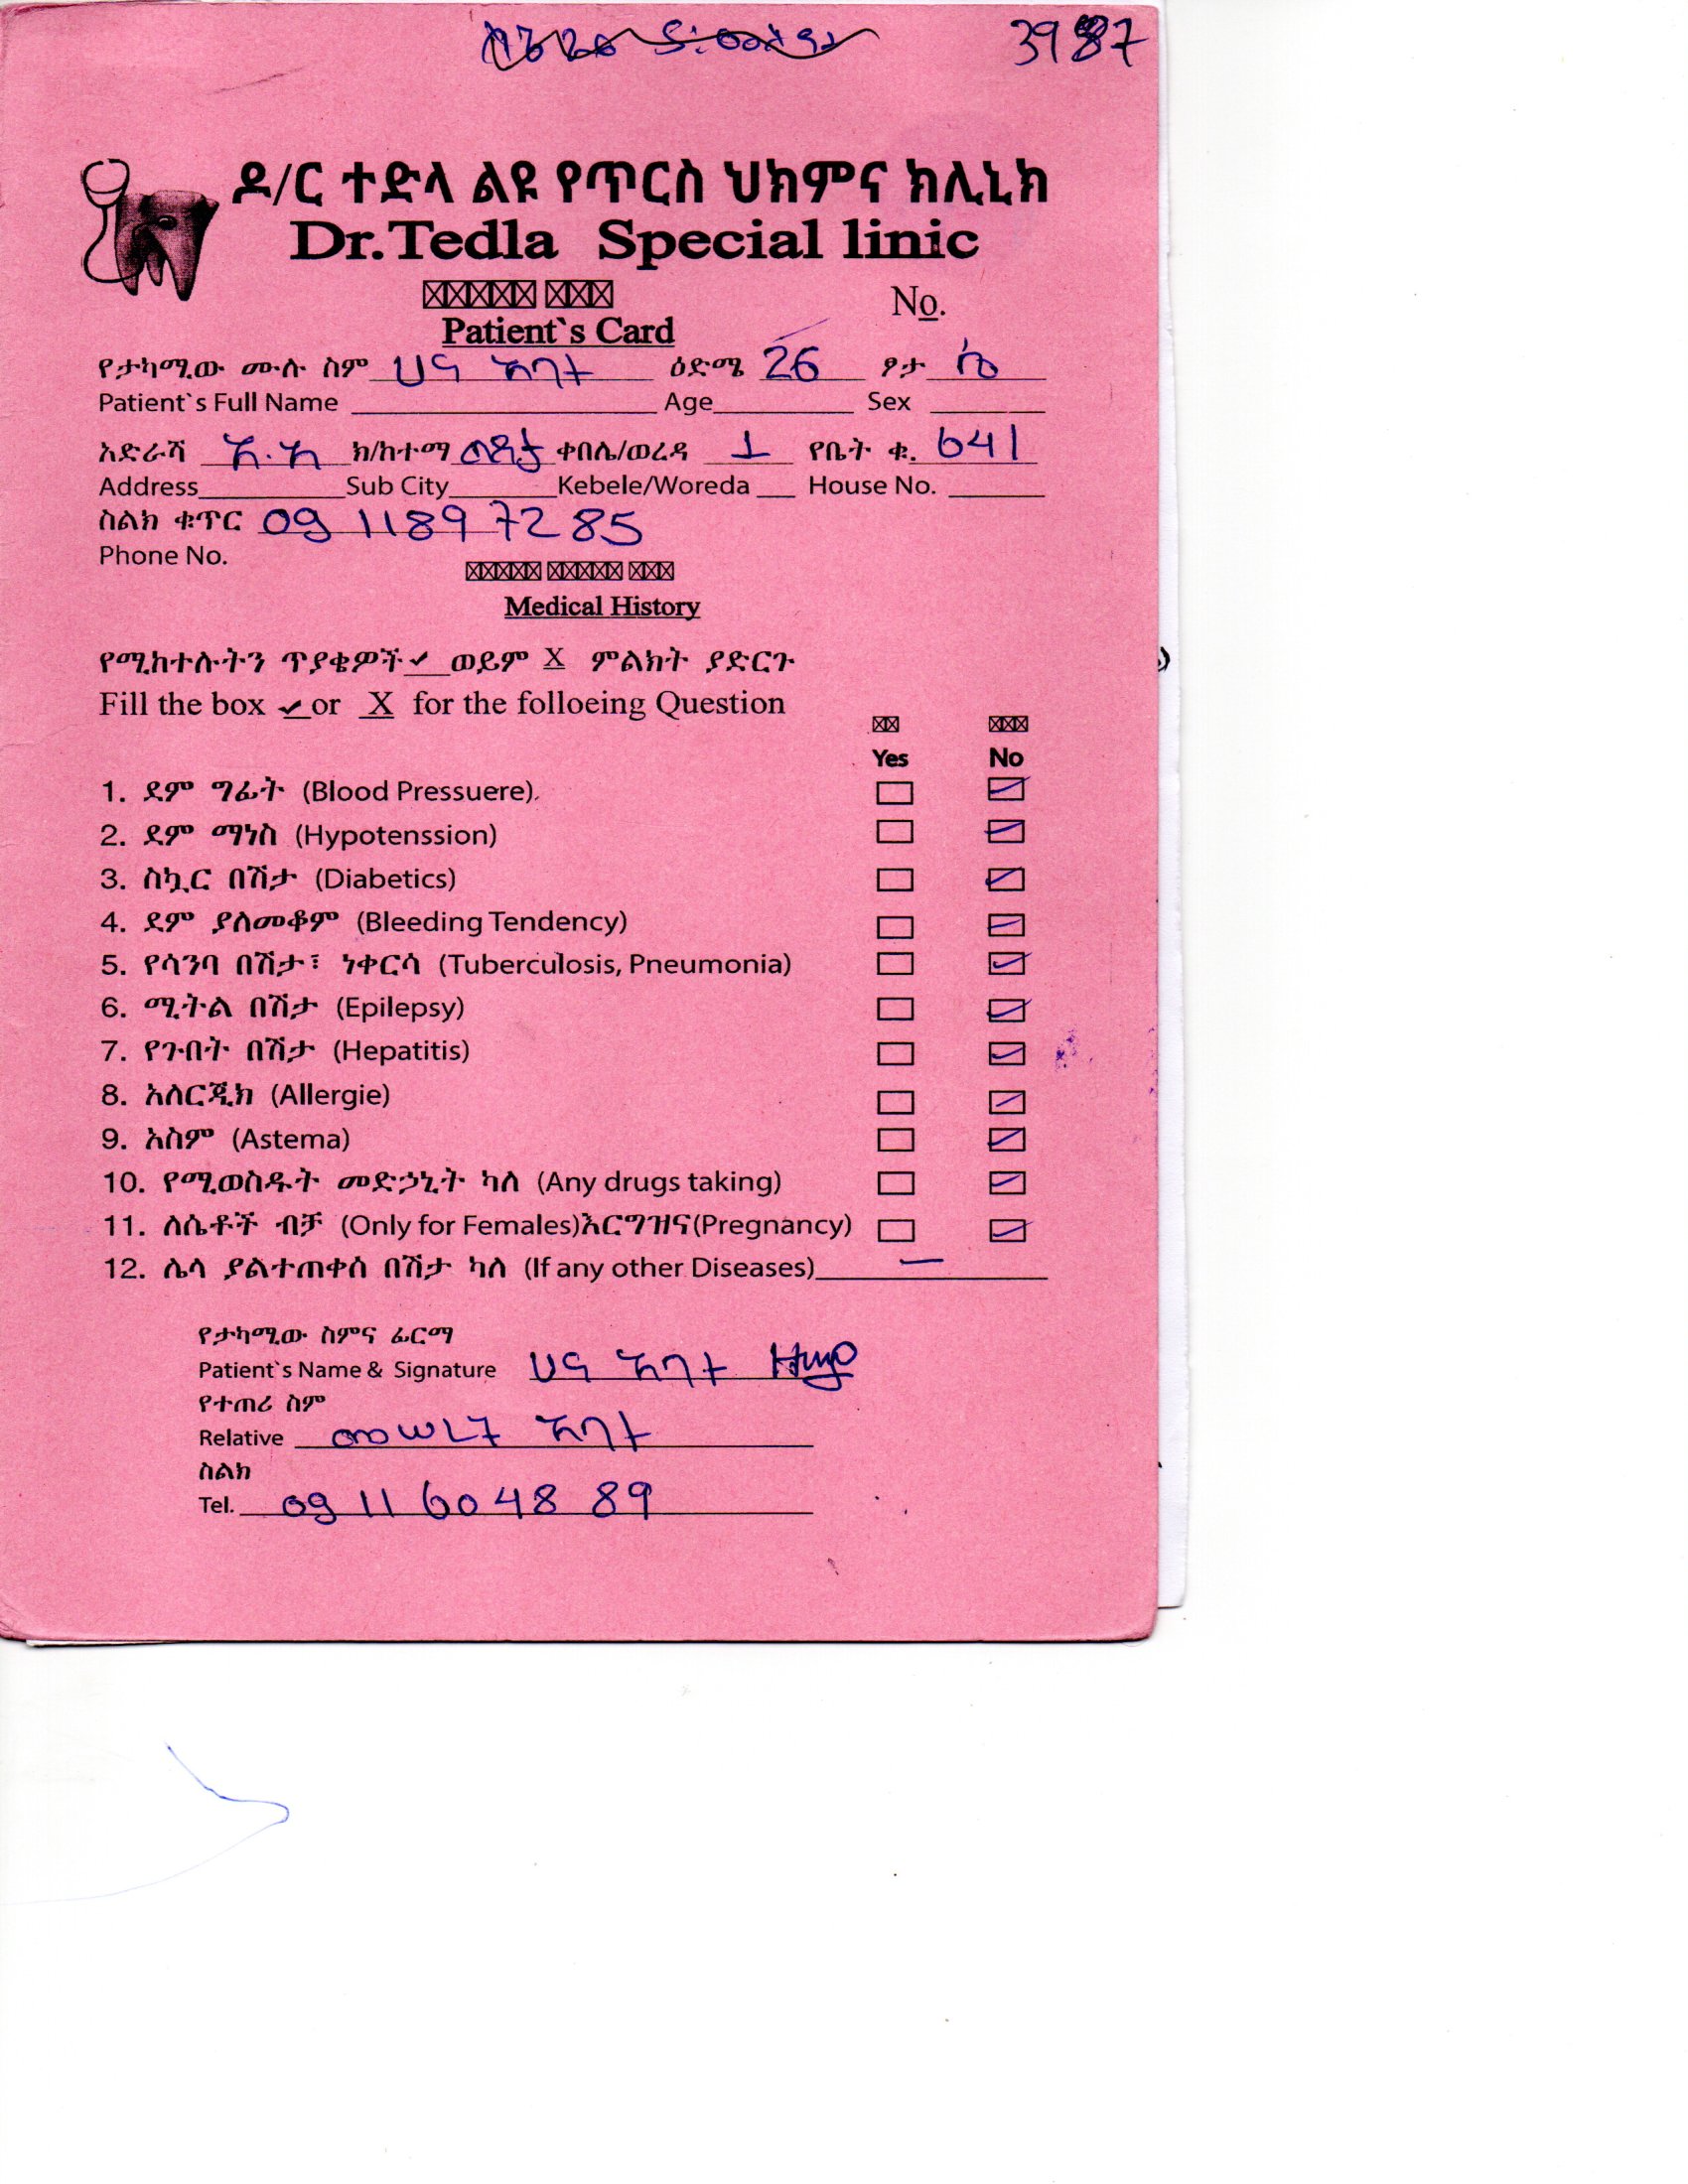 3987
ዶ/ር ተድላ ልዩ የጥርስ ህክምና ክሊኒክ
Dr.Tedla Special linic
No.
Patient`s Card
የታካሚው ሙሉ ስም ሀና አባተ ዕድሜ 26 ፆታ ሴ
Patient`s Full Name Age Sex
አድራሻ አ.አ ክ/ከተማ ቀበሌ/ወረዳ 1 የቤት ቁ. 641
Address Sub City Kebele/Woreda House No.
ስልክ ቁጥር 09 11 89 72 85
Phone No.
Medical History
የሚከተሉትን ጥያቄዎች ✓ ወይም X ምልክት ያድርጉ
Fill the box ✓ or X for the folloeing Question
Yes No
1. ደም ግፊት (Blood Pressuere).
2. ደም ማነስ (Hypotenssion)
3. ስኳር በሽታ (Diabetics)
4. ደም ያለመቆም (Bleeding Tendency)
5. የሳንባ በሽታ፣ ነቀርሳ (Tuberculosis, Pneumonia)
6. ሚትል በሽታ (Epilepsy)
7. የጉበት በሽታ (Hepatitis)
8. አለርጂክ (Allergie)
9. አስም (Astema)
10. የሚወስዱት መድኃኒት ካለ (Any drugs taking)
11. ለሴቶች ብቻ (Only for Females)እርግዝና(Pregnancy)
12. ሌላ ያልተጠቀሰ በሽታ ካለ (If any other Diseases) —
የታካሚው ስምና ፊርማ
Patient`s Name & Signature ሀና አባተ
የተጠሪ ስም
Relative መሠረት አባተ
ስልክ
Tel. 09 11 60 48 89